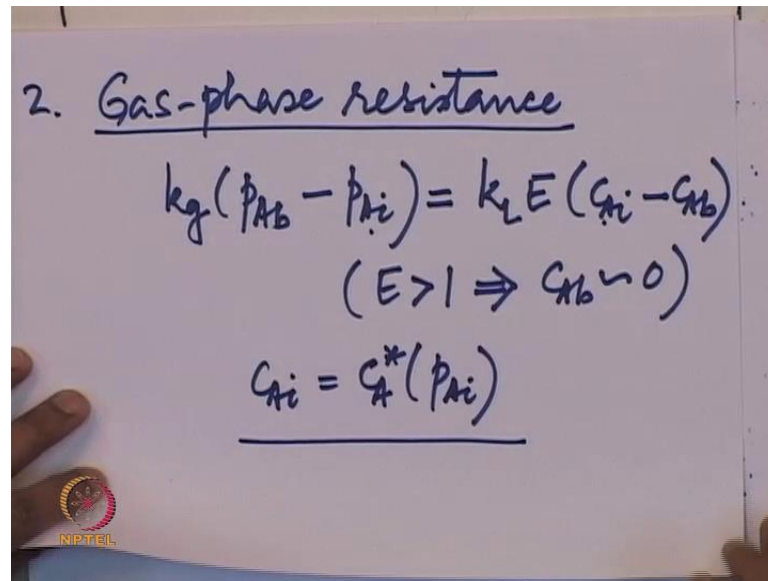 2. Gas-phase resistance
kg(pAb - pAi) = kL E (CAi - CAb)
(E > 1 ⇒ CAb ∽ 0)
CAi = CA*(pAi)
NPTEL